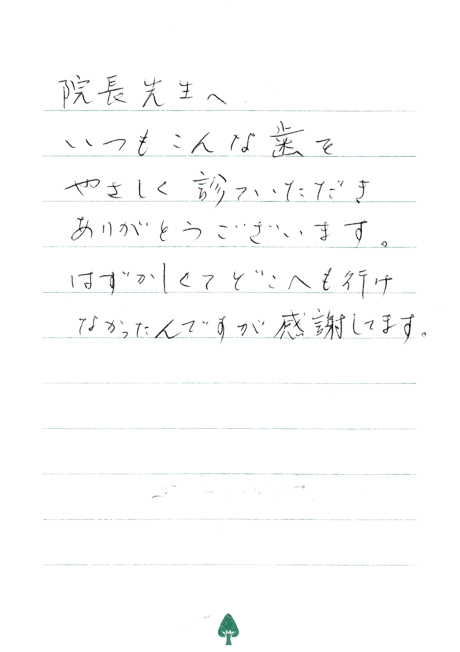 院長先生へ
いつもこんな歯を
やさしく診ていただき
ありがとうございます。
はずかしくてどこへも行け
なかったんですが感謝してます。